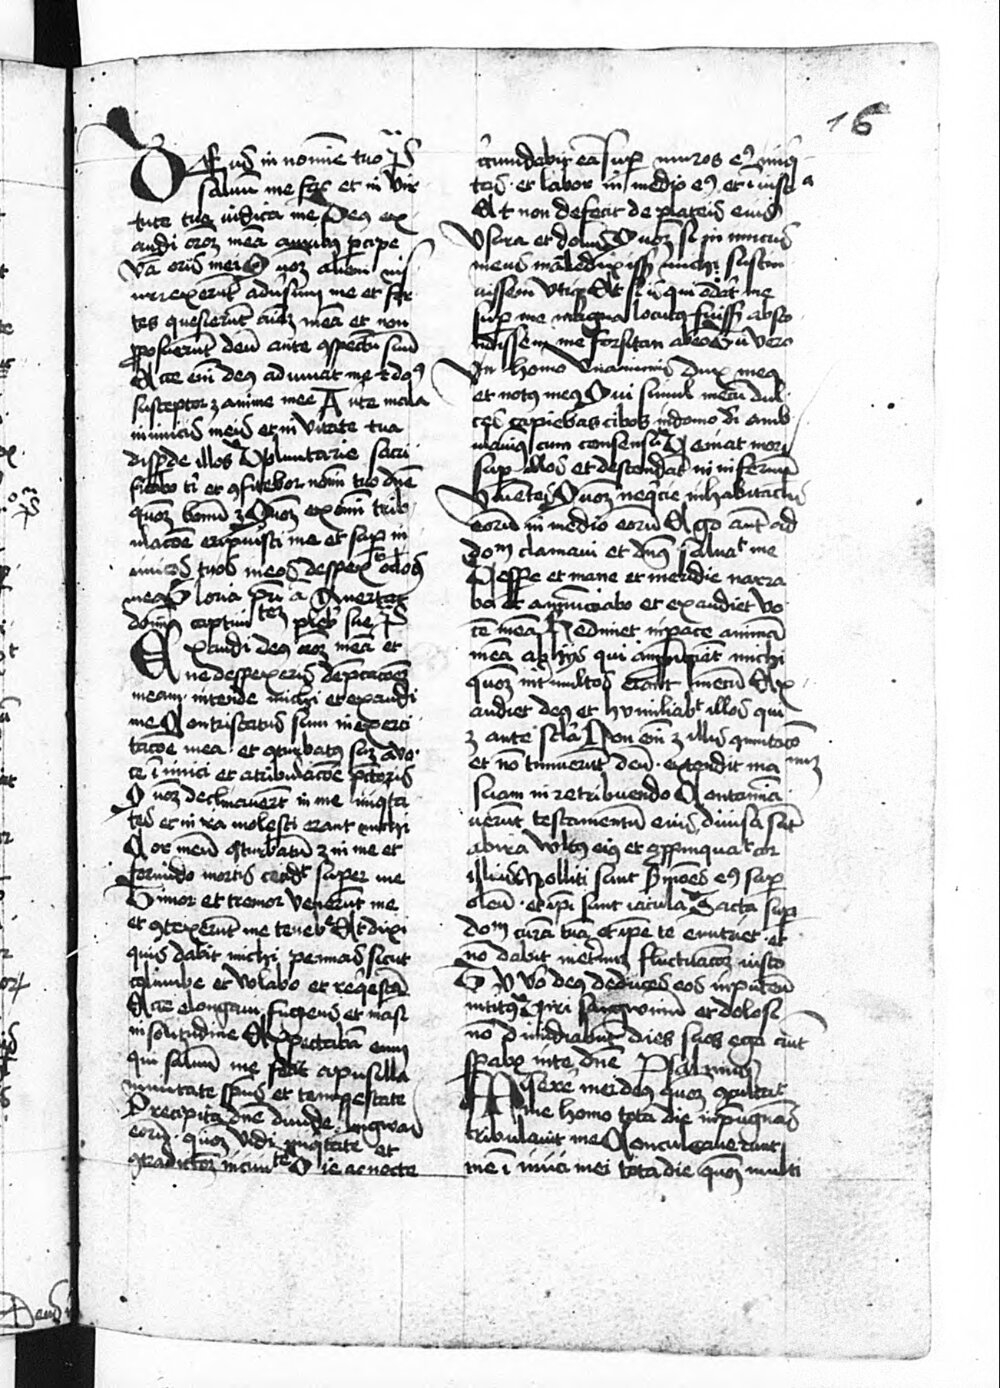 16
Deus in nomine tuo ps
saluu me fac et in vir
tute tua iudica me Deus ex
audi oroz mea auribus pcipe
va oris mei Quoz alieni in
surrexerut adusum me et for
tes quesierut aiaz mea et non
pposuerut deu ante ɔspectu suu
Ecce eni deus adiuuat me et dns
susceptor ʒ anime mee Auerte mala
inimicis meis et in veritate tua
dispde illos Voluntarie sacri
ficabo ti et ɔfitebor nomi tuo dne
quoz bonu ʒ Quoz ex omi trib
ulacoe eripuisti me et sup in
imicos tuos meos despex oclos
meus Gloria pri a Auertat
domins captiui tez pleb sue ps
Exaudi deus oroz mea et
ne despexeris depcacoez
meam intende michi et exaudi
me Contristatus sum in exerci
tacoe mea et ɔturbatus suz a vo
ce inimici et a tribulacoe pctoris
Quoz declinauert in me iniqta
tes et in ira molesti erant michi
Cor meu ɔturbatu ʒ in me et
formido mortis cecidt super me
Timor et tremor venerut me
et ɔtexerut me teneb Et dixi
quis dabit michi pennas sicut
columbe et volabo et reqesca
Ecce elongaui fugiens et masi
in solitudine Expectaba eum
qui saluu me fecit a pusilla
nimitate spus et tempestate
Precipita dne diuide lingwas
eoru quoz vidi iniqtate et
ɔtradictoz in ciuite Die ac nocte
circundabit ea sup muros eius iniq
tas et labor in medio eius et iniusticia
Et non defecit de plateis eius
vsura et dolus Quoz si inimicus
meus maledixisst michi sustin
uissem vtiqz Et si is qui oderat me
sup me magna locutus fuisst absco
ndissem me forsitan ab eo Tu vero
homo vnanimis dux meus
et notus meus Qui simul mecu dul
ces capiebas cibos in domo di amb
ulauimus cum consensu Veniat mors
sup illos et descendat in infernu
viuetes Quoz neqcie in habitaclis
eoru in medio eoru Ego aut ad
dom clamaui et dns saluat me
Vespe et mane et meridie narra
bo et annuciabo et exaudiet vo
ce mea Redimet in pace anima
mea ab hijs qui appinquet michi
quoz int multos erant mecu Ex
audiet deus et humiliabt illos qui
ʒ ante secla Non eni ʒ illis ɔmutaco
et no timuerut deu extendit manuz
suam in retribuendo Contamia
uerut testamentu eius diuisi sut
ab ira vultus eius et appinquat cor
illius Molliti sunt smoes eius sup
oleu et ipi sunt iacula Jacta sup
dom cura tua et ipe te enutriet et
no dabit in eternu fluctuacoz iusto
Tu vo deus deduces eos in puteu
interitus Viri sangwinu et dolosi
no dimidiabunt dies suos ego aut
spabo in te dne Psalmus
Miserere mei deus quoz ɔculcat
me homo tota die inpugnas
tribulauit me Conculcauerunt
me inimici mei tota die quoz multi